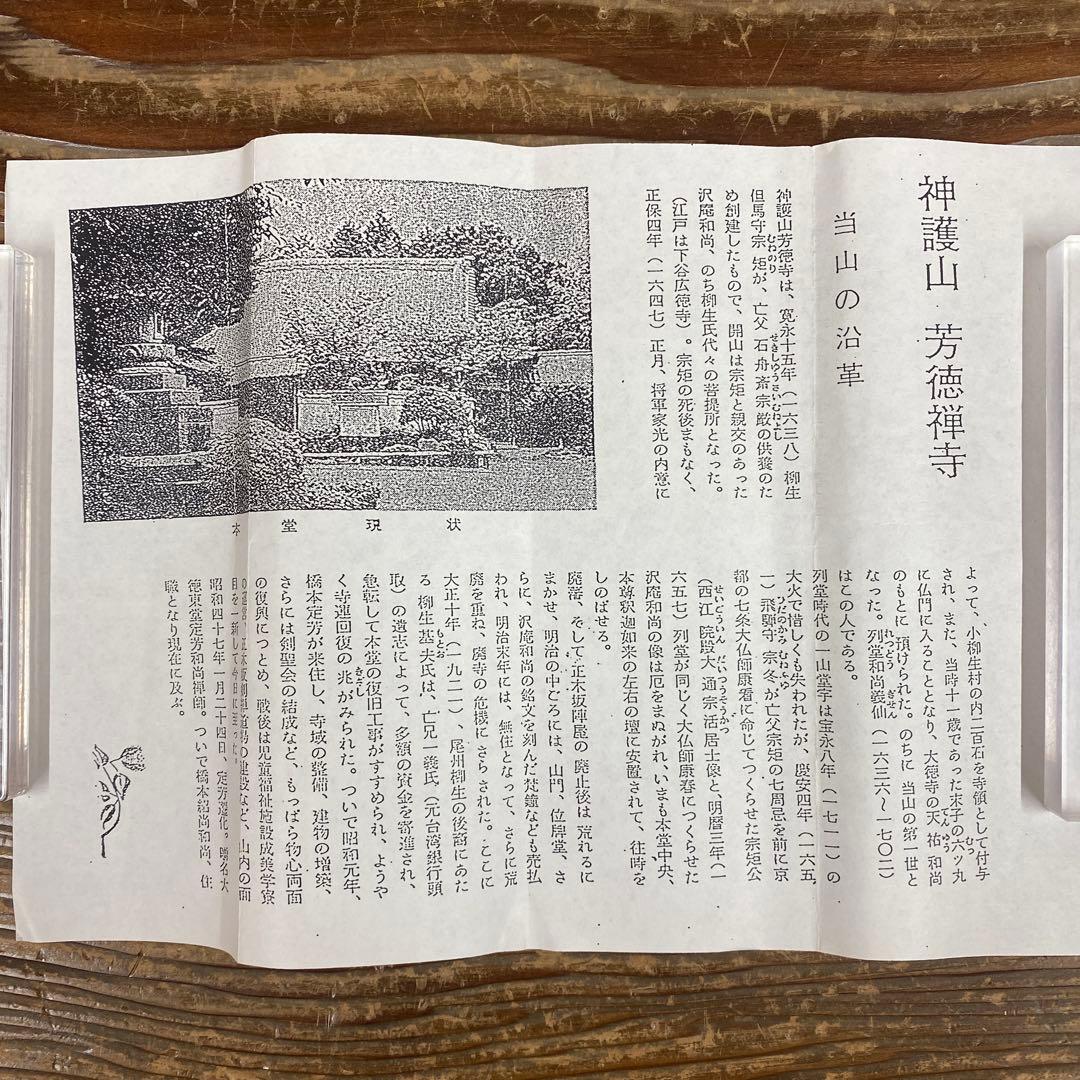 神護山 芳徳禅寺
当山の沿革
神護山芳徳寺は、寛永十五年(一六三八)柳生
但馬守宗矩が、亡父 石舟斎宗厳の供養のた
むねのり
せきしゅうさいむねよし
め創建したもので、開山は宗矩と親交のあった
沢庵和尚、のち柳生氏代々の菩提所となった。
(江戸は下谷広徳寺)。宗矩の死後まもなく、
正保四年(一六四七)正月、将軍家光の内意に
本堂現状
よって、小柳生村の内二百石を寺領として付与
され、また、当時十一歳であった末子の六ツ丸
むつ
に仏門に入ることとなり、大徳寺の天祐和尚
てんゆう
のもとに預けられた。のちに当山の第一世と
なった。列堂和尚義仙(一六三六〜一七〇二)
れつどう
ぎせん
はこの人である。
列堂時代の一山堂宇は宝永八年(一七一一)の
大火で惜しくも失われたが、慶安四年(一六五
一)飛騨守宗冬が亡父宗矩の七周忌を前に京
ひだのかみむねふゆ
都の七条大仏師康看に命じてつくらせた宗矩公
(西江院殿大通宗活居士像と、明暦三年(一
せいごういん
だいつうそうかつ
六五七)列堂が同じく大仏師康春につくらせた
沢庵和尚の像は厄をまぬがれ、いまも本堂中央、
本尊釈迦如来の左右の壇に安置されて、往時を
しのばせる。
廃藩、そして正木坂陣屋の廃止後は荒れるに
まかせ、明治の中ごろには、山門、位牌堂、さ
らに、沢庵和尚の銘文を刻んだ梵鐘なども売払
われ、明治末年には、無住となって、さらに荒
廃を重ね、廃寺の危機にさらされた。ここに
大正十年(一九二一)、尾州柳生の後裔にあた
る 柳生基夫氏は、亡兄一義氏(元台湾銀行頭
もとお
取)の遺志によって、多額の資金を寄進され、
急転して本堂の復旧工事がすすめられ、ようや
く寺運回復の兆がみられた。ついで昭和元年、
きざし
橋本定芳が来住し、寺域の整備、建物の増築、
さらには剣聖会の結成など、もっぱら物心両面
の復興につとめ、戦後は児童福祉施設成美学寮
の運営、正木坂剣禅道場の建設など、山内の面
目を一新して今日に至った。
昭和四十七年一月二十四日、定芳遷化。贈名大
徳東堂定芳和尚禅師。ついで橋本紹尚和尚、住
職となり現在に及ぶ。